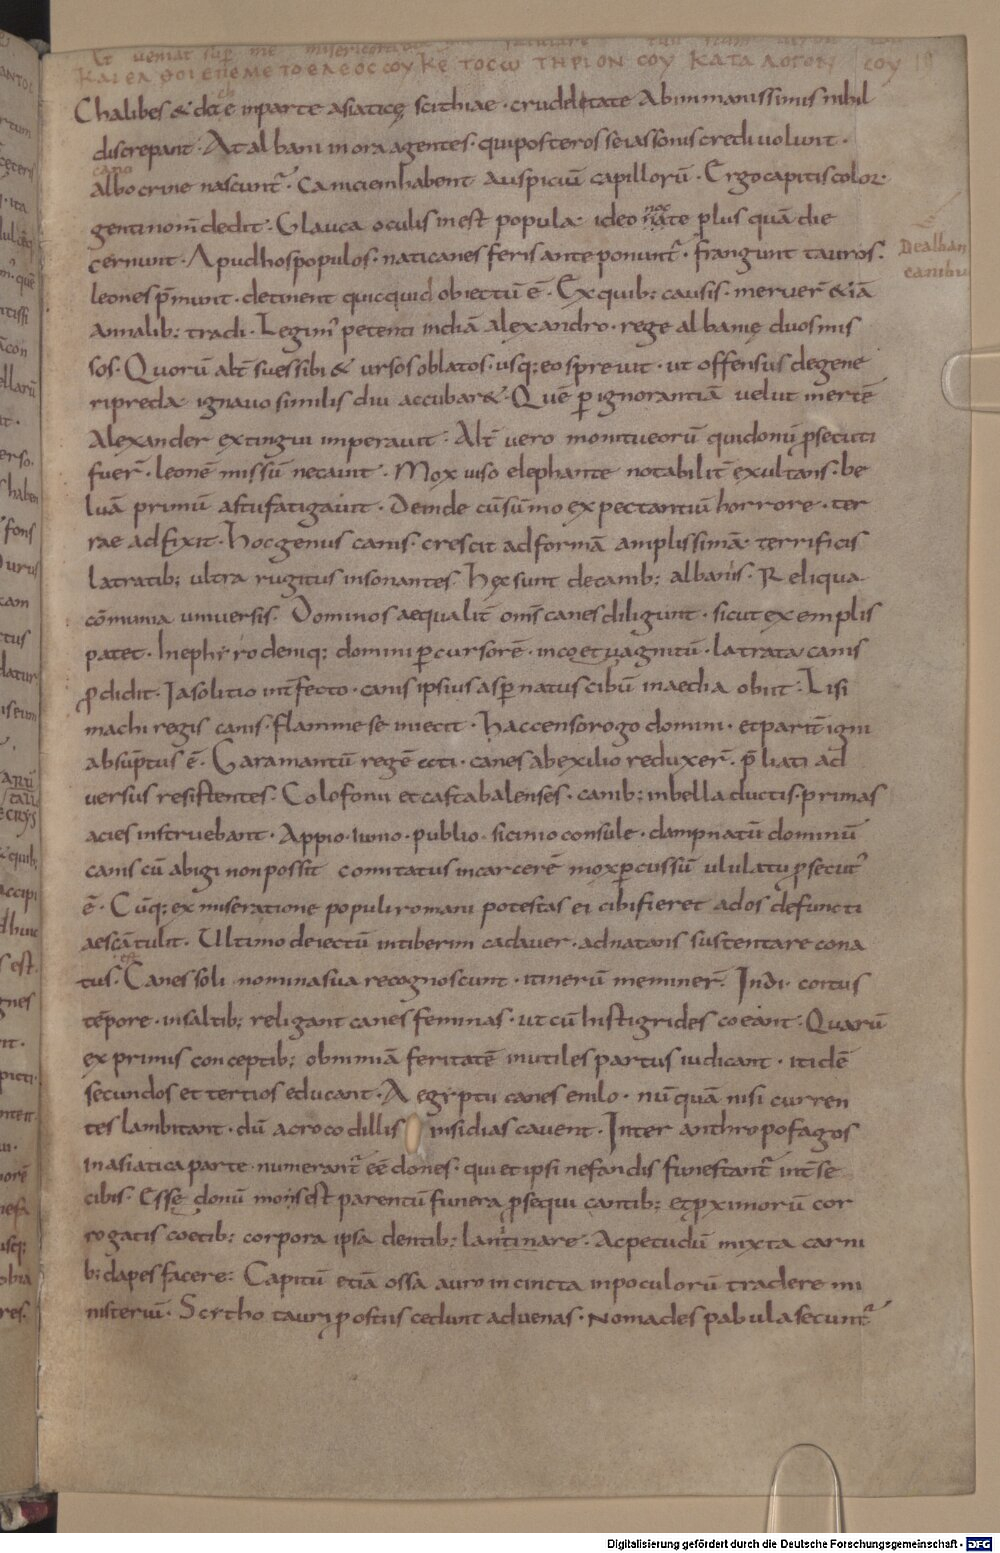 Et ueniat sup me misericordia
ΚΑΙ ΕΛΘΟΙ ΕΠΕΜΕ ΤΟ ΕΛΕΟC COY ΚΕ ΤΟ CΩΤΗΡΙΟΝ COY ΚΑΤΑ ΛΟΓΟΝ COY
Chalibes & dace inparte asiaticę scithiae · crudelitate abinmanissimis nihil
discrepant · At albani in ora agentes · quiposteros seiassonis credi uolunt ·
cano
albo crine nascunt̄ · Caniciem habent auspiciū capillorū · Ergo capitis color
genti nom̄ dedit · Glauca oculis inest popula · ideo nocte plus quā die
cernunt · Apud hos populos · nati canes feris ante ponunt̄ · frangunt tauros ·
Dealban
canibus
leones p̄munt · detinent quicquid obiectū ē · Ex quib; causis · meruer̄ & iā
annalib; tradi · Legim̄ petenti indiā alexandro · rege albanię duos mis
sos · Quorū alt̄ sues sibi & ursos oblatos · usq; eo spreuit · ut offensus degene
ri preda ignauo similis diu accubar& · Quē p ignorantiā uelut inertē
Alexander extingui imperauit · Alt̄ uero monitu eorū qui donū p̄secuti
fuer̄ · leonē missū necauit · Mox uiso elephante notabilit̄ exultans · be
luā primū astu fatigauit · Deinde cū sūmo expectantiū horrore · ter
rae adfixit · Hoc genus canis · crescit ad formā amplissimā terrificis
latratib; ultra rugitus insonantes · Hęc sunt de canib; albanis · Reliqua
cōmunia uniuersis · Dominos aequalit̄ om̄s canes diligunt · sicut exemplis
patet · In ephyro deniq; domini p cursorē · in coetu agnitū · latratu canis
p̄didit · Iaso litio int̄fecto · canis ipsius aspernatus cibū inaedia obiit · Lisi
machi regis canis · flamme se iniecit · hac censo rogo domini · et parit̄ igni
absūptus ē · Garamantū regē ccti · canes ab exilio reduxer̄ · p̄liati ad
uersus resistentes · Colofonii et castabalenses · canib; in bella ductis · primas
acies instruebant · Appio iunio · publio · sicinio consule · dampnatū dominū
canis cū abigi non possit comitatus in carcerē mox percussū ululatu p̄secut̄
ē · Cūq; ex miseratione populi romani potestas ei cibi fieret ad os defuncti
aescā tulit · Ultimo deiectū in tiberim cadauer · adnatans sustentare cona
est
tus · Canes soli nomina sua recognoscunt · itinerū meminer̄ · Indi coitus
tēpore · in saltib; religant canes feminas · ut cū his tigrides coeant · Quarū
ex primis conceptib; ob nimiā feritatē inutiles partus iudicant · itidē
secundos et tertios educant · Aegyptii canes e nilo · nūquā nisi curren
tes lambitant · dū a crocodillis insidias cauent · Inter anthropofagos
in asiatica parte numerant̄ eedones · qui et ipsi nefandis funestant̄ int̄ se
cibis · Essedonū mos est parentū funera p̄sequi cantib; et p̄ximorū cor
rogatis coetib; corpora ipsa dentib; laniare · Ac pecudū mixta carni
b; dapes facere · Capitū etiā ossa auro incincta in poculorū tradere mi
nisteriū · Scytho tauri p ostiis cedunt aduenas · Nomades pabula secunt̄
Digitalisierung gefördert durch die Deutsche Forschungsgemeinschaft - DFG